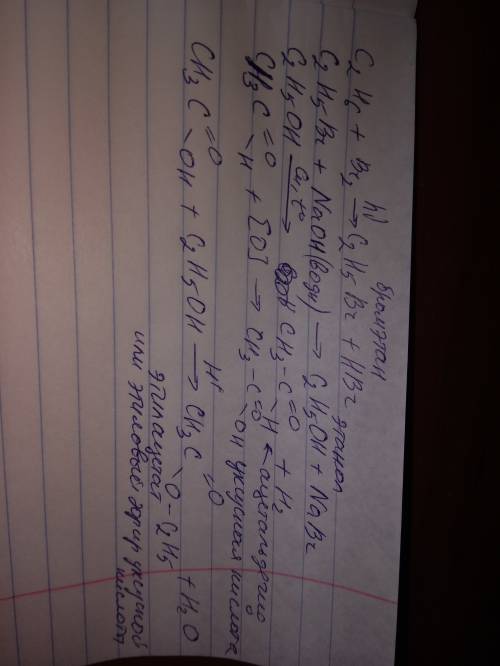 hν бромэтан
C2H6 + Br2 → C2H5Br + HBr
этанол
C2H5Br + NaOH(водн) → C2H5OH + NaBr
C2H5OH Cu, t° → CH3-C=O -H + H2 ← ацетальдегид
CH3C=O -H + [O] → CH3-C=O -OH уксусная кислота
CH3C=O -OH + C2H5OH H+ → CH3C=O -O-C2H5 + H2O
этилацетат
или этиловый эфир уксусной
кислоты